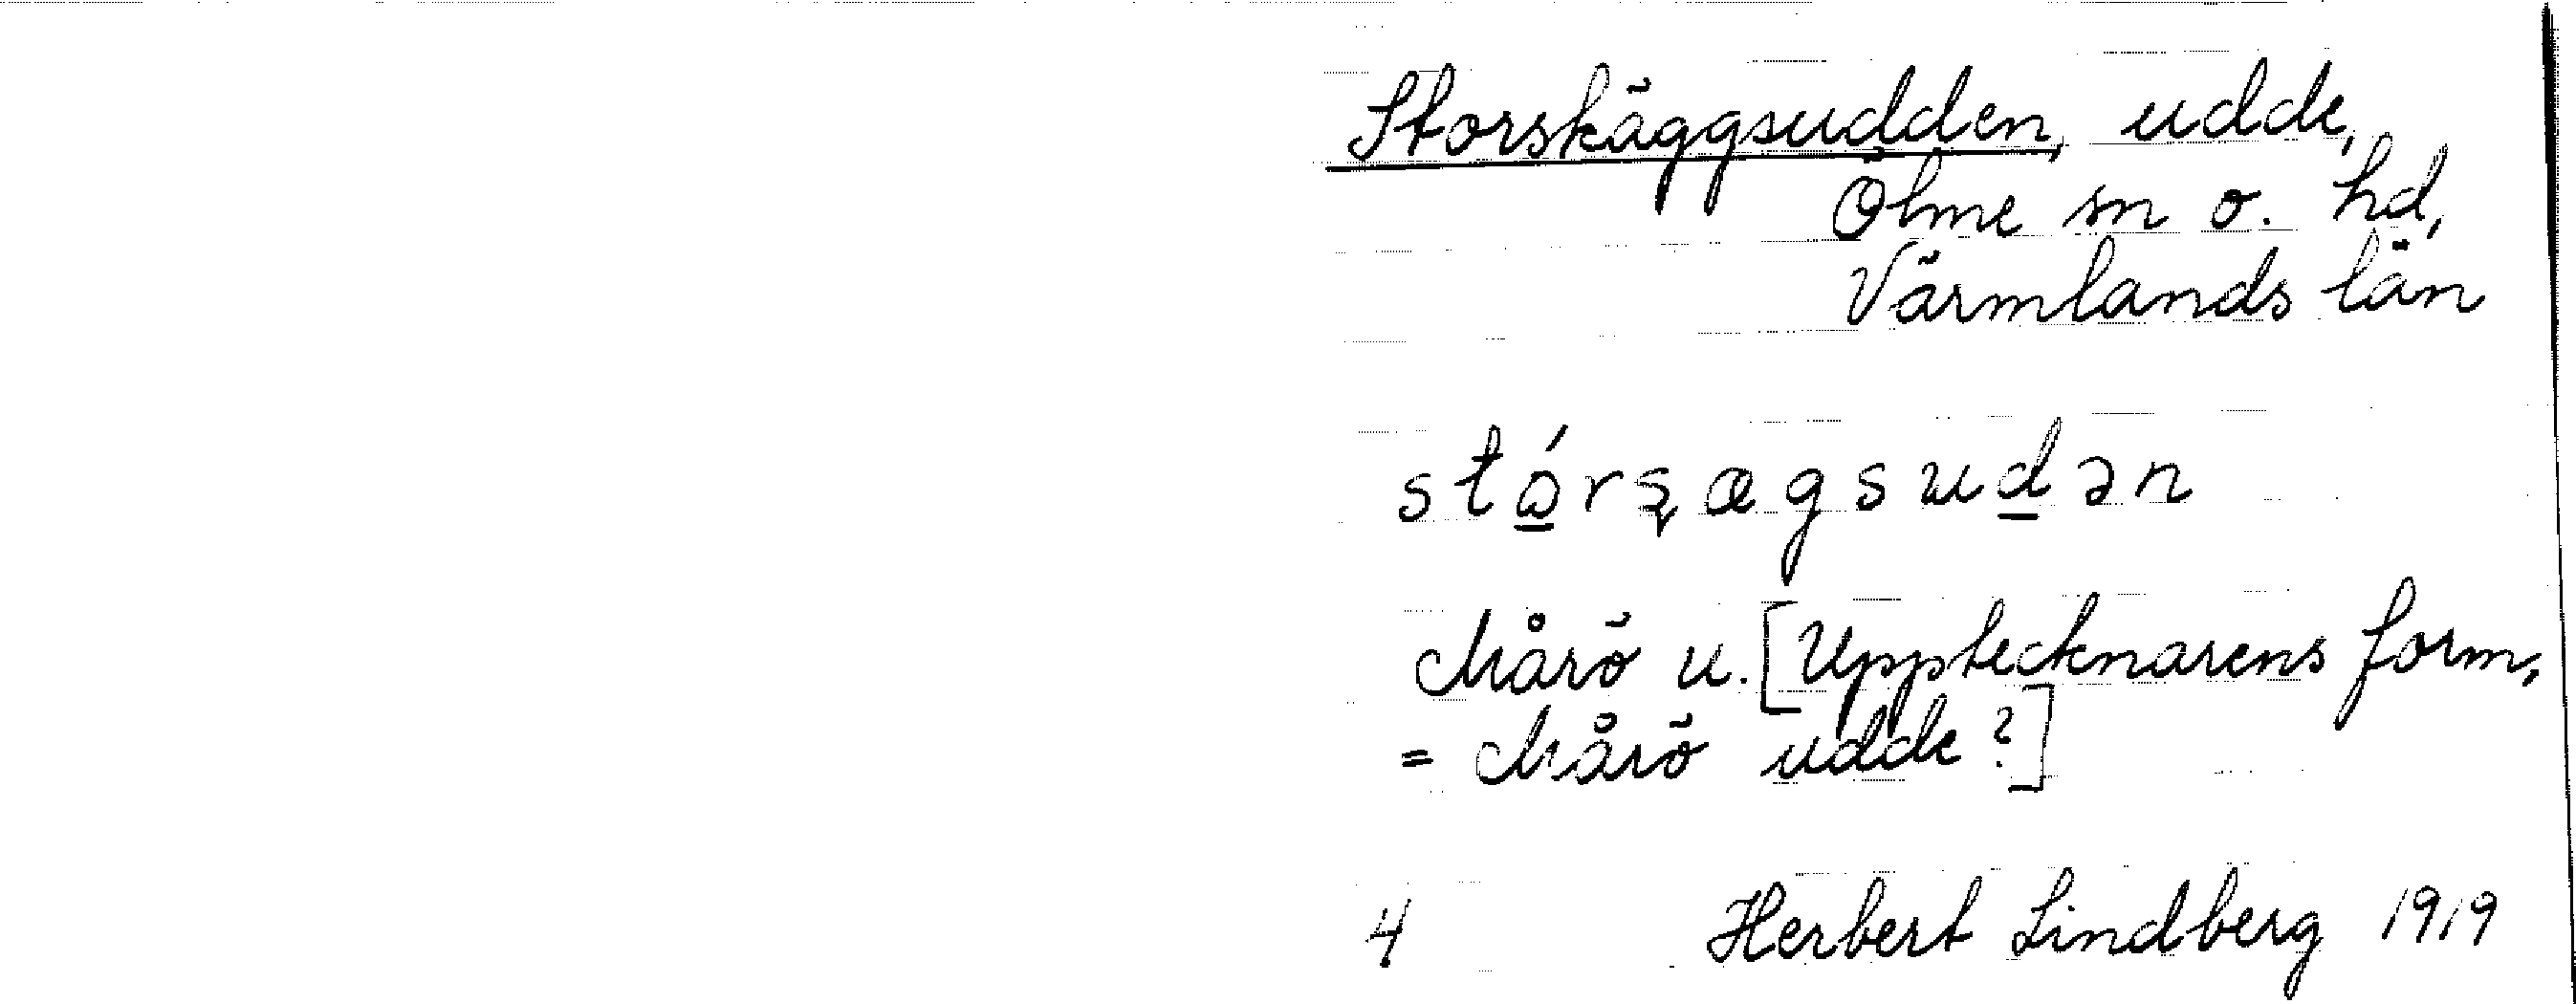 Storskäggsudden, udde,
Ölme sn o. hd,
Värmlands län
Mårö u. [Upptecknarens form,
= Mårö udde?]
4 Herbert Lindberg 1919